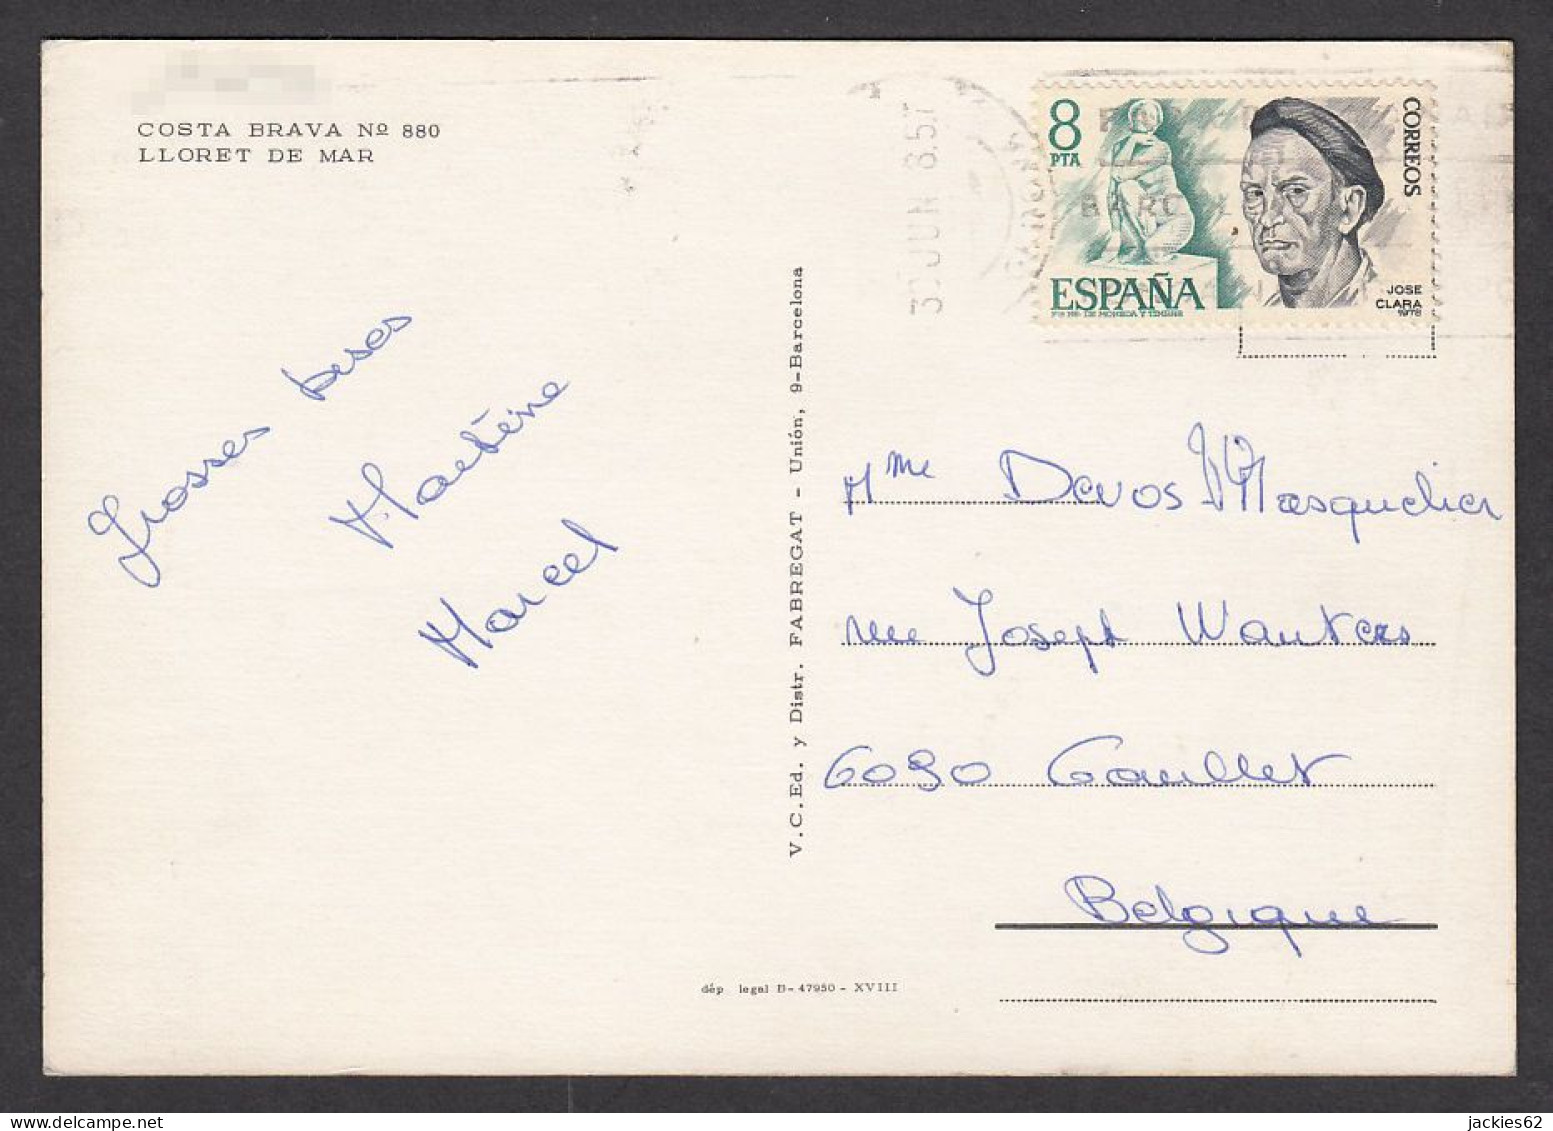 COSTA BRAVA Nº 880
LLORET DE MAR
Grosses bises
Martine
Marcel
V.C.Ed. y Distr. FABREGAT - Unión, 9-Barcelona
dép legal B- 47950 - XVIII
JUN
8
PTA
CORREOS
ESPAÑA
JOSE
CLARA
1978
Mme Devos Masquelier
rue Joseph Wauters
6090 Couillet
Belgique
jackies62